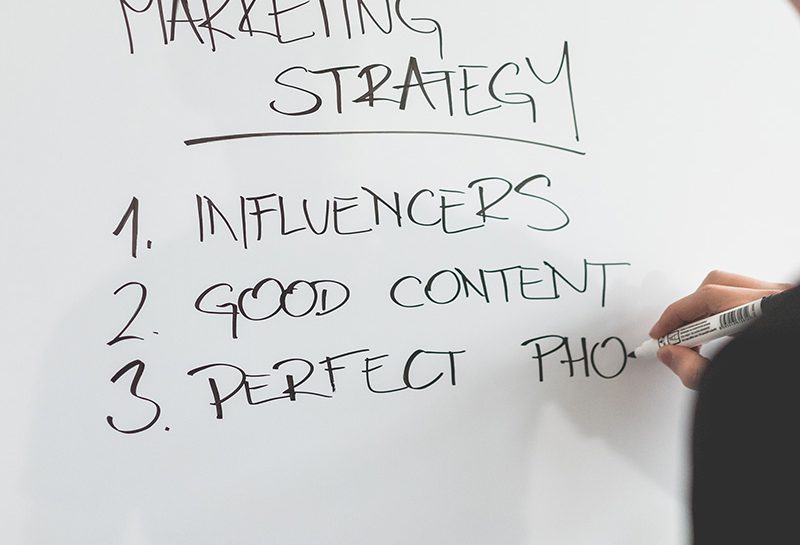 MARKETING
STRATEGY
1. INFLUENCERS
2. GOOD CONTENT
3. PERFECT PHO